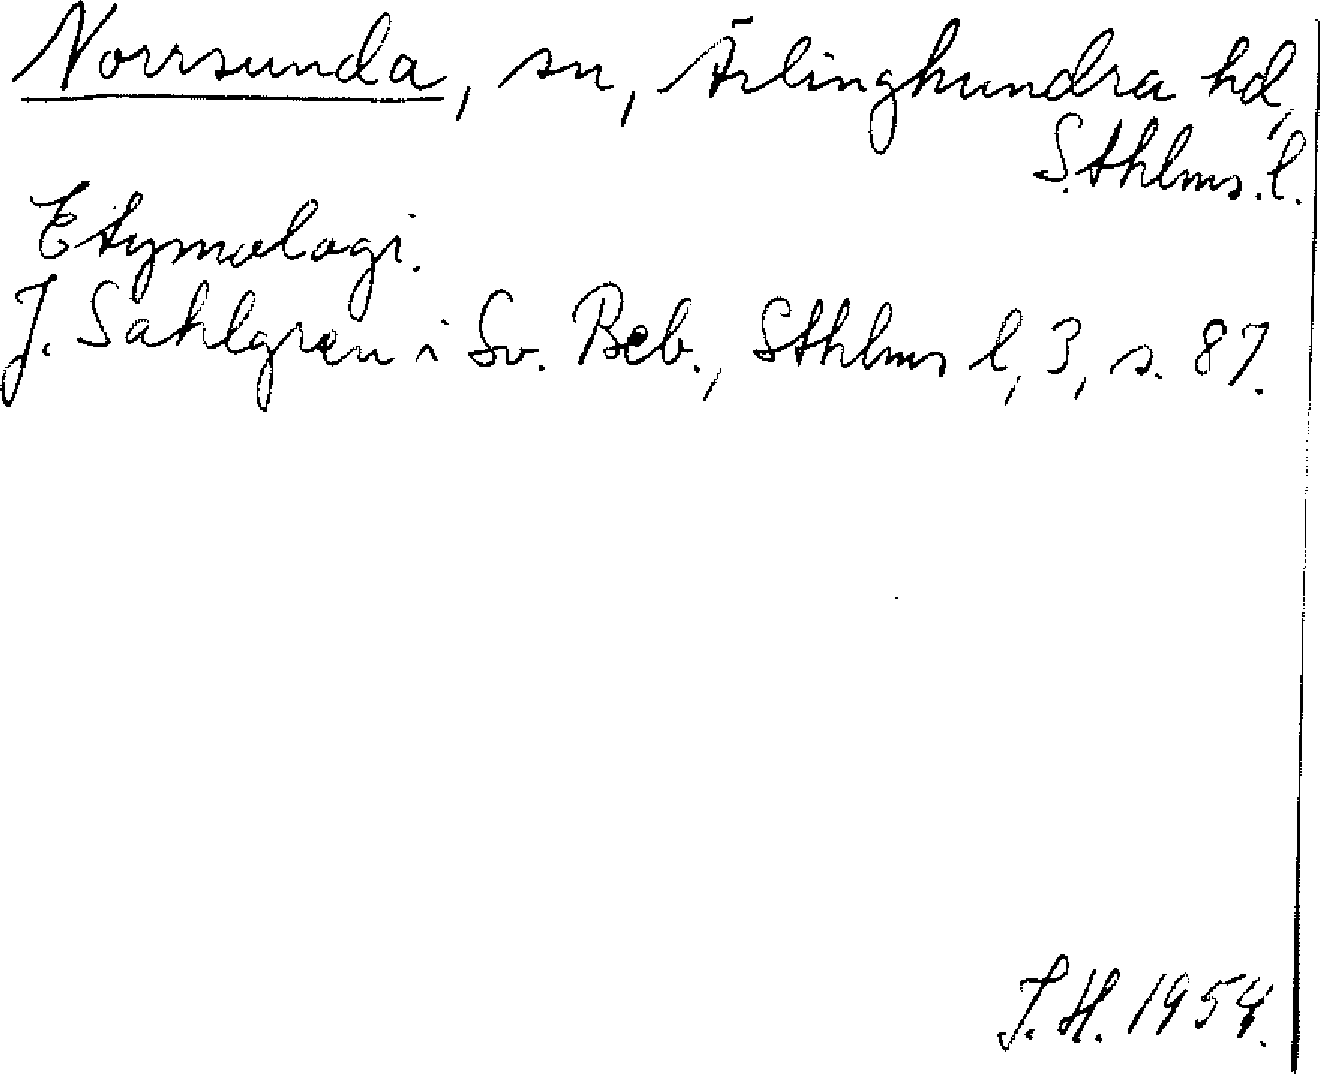 Norrsunda, sn, Ärlinghundra hd,
Sthlms. l.
Etymologi.
J. Sahlgren i Sv. Beb., Sthlms l, 3, s. 87.
J. H. 1954.